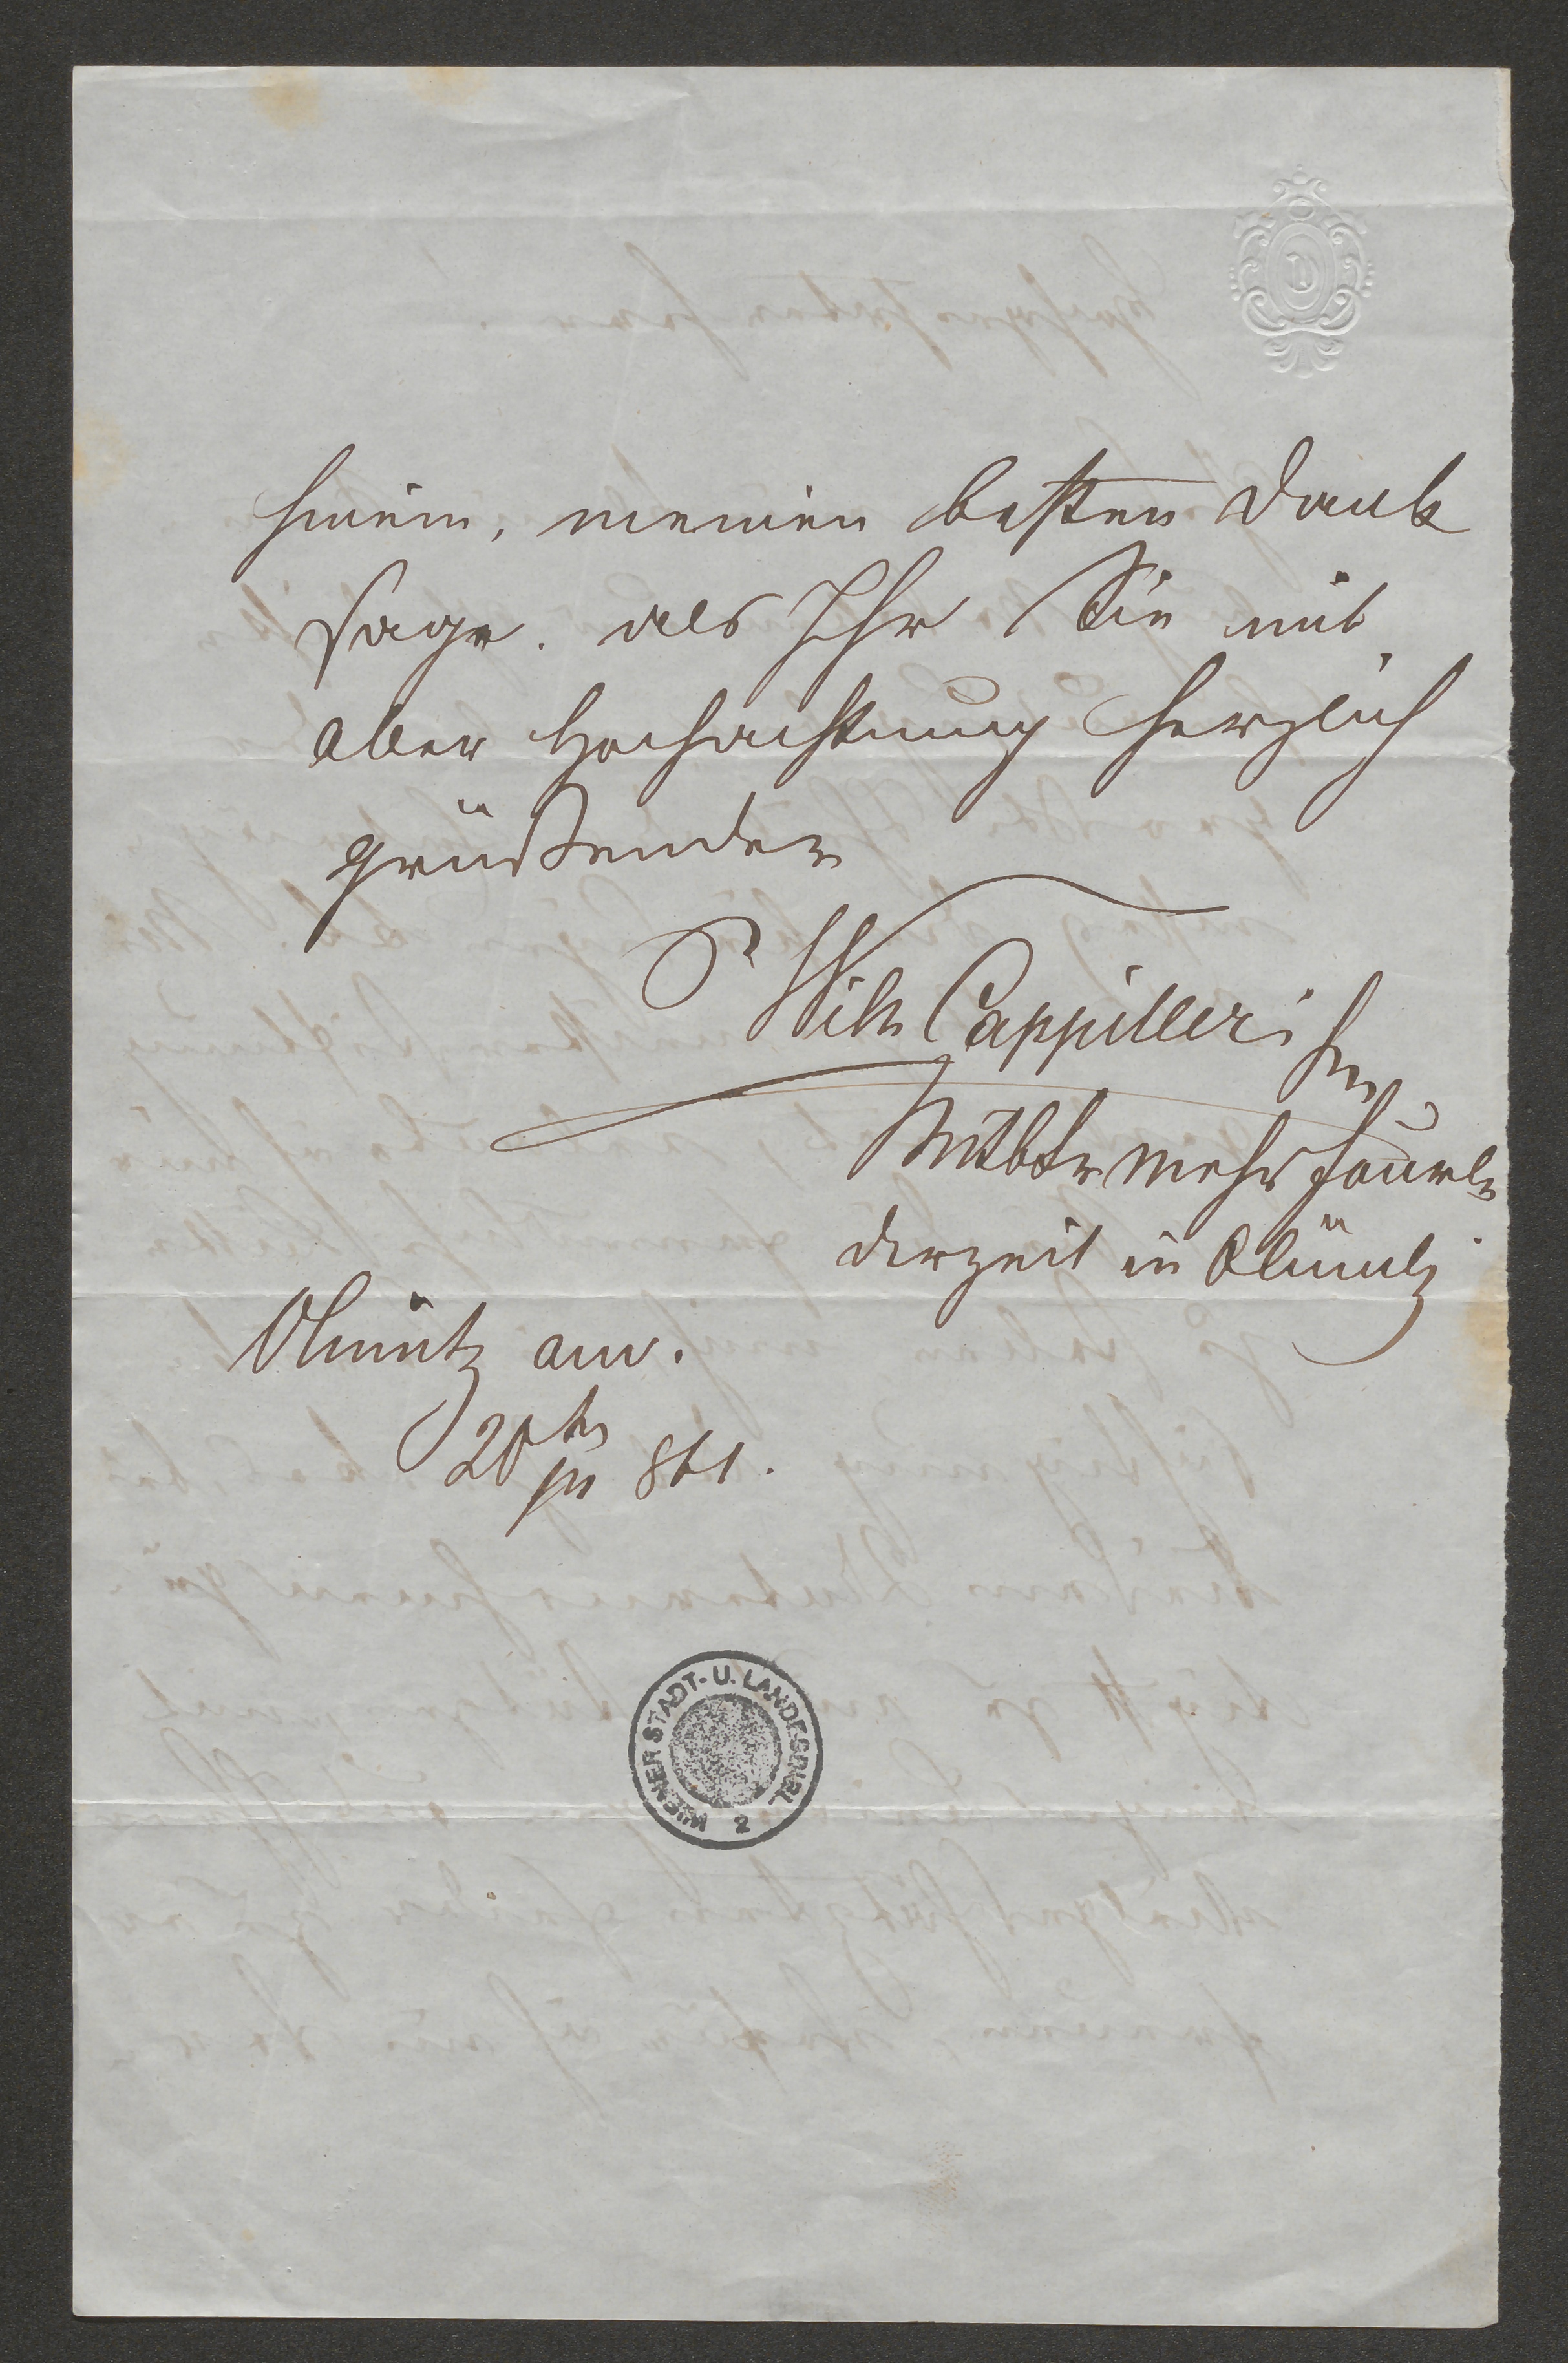 meinen besten Dank
sage. als Ihr Sie mit
aller Hochachtung herzlich
grüßender
Wilh Cappilleri
Mitbtr mehr Journle
derzeit in Olmütz
Olmütz am.
20ten 861.
WIENER STADT- U. LANDESBIBL.
2